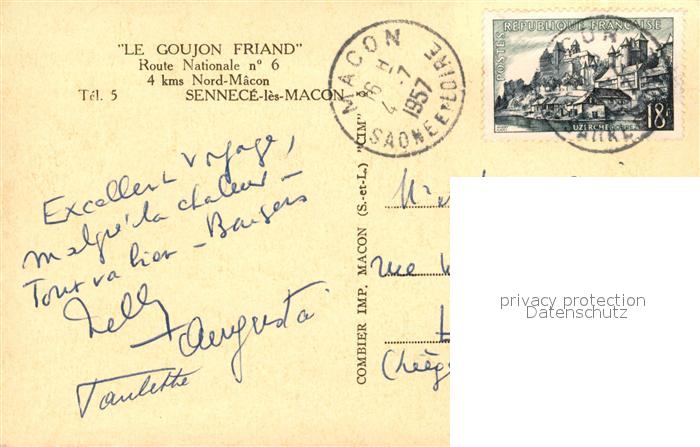 "LE GOUJON FRIAND"
Route Nationale n° 6
4 kms Nord-Mâcon
Tél. 5 SENNECÉ-lès-MACON
MACON
16 H
4 -7
1957
SAONE ET LOIRE
POSTES
REPUBLIQUE FRANÇAISE
UZERCHE
18F
Excellent voyage,
malgré la chaleur -
Tout va bien - Baisers
Nelly
Augusta
Paulette
COMBIER IMP. MACON (S.-et-L.) "CIM"
rue
privacy protection
Datenschutz